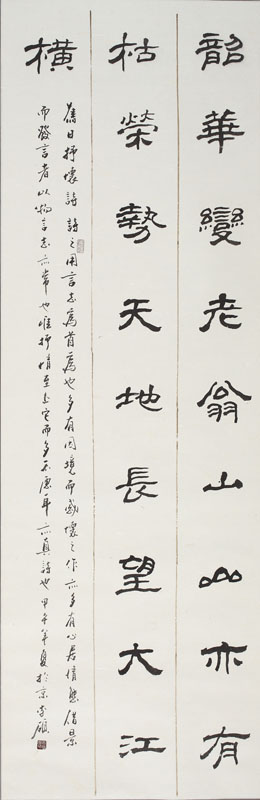 韶華變老翁山山亦有
枯榮勢天地長望大江
橫
舊日抒懷詩 詩之用言志爲首爲也多有因境而感懷之作亦多有心居情借景
而發言者以物言志亦常也唯抒情至而多不耳亦真詩也甲午年夏於京